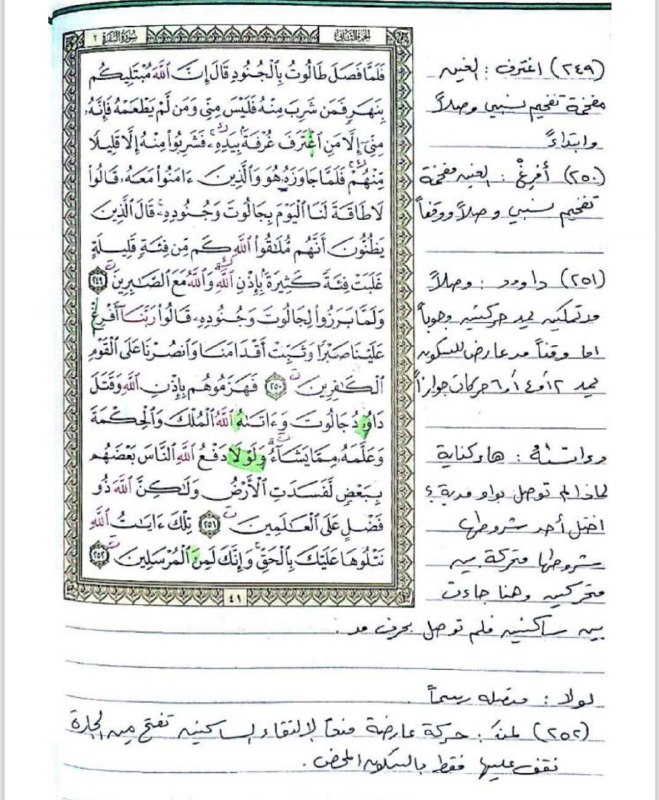 الجزء الثاني
سورة البقرة ٢
فَلَمَّا فَصَلَ طَالُوتُ بِالْجُنُودِ قَالَ إِنَّ اللَّهَ مُبْتَلِيكُم
بِنَهَرٍ فَمَن شَرِبَ مِنْهُ فَلَيْسَ مِنِّي وَمَن لَّمْ يَطْعَمْهُ فَإِنَّهُ
مِنِّي إِلَّا مَنِ اغْتَرَفَ غُرْفَةً بِيَدِهِ فَشَرِبُوا مِنْهُ إِلَّا قَلِيلًا
مِّنْهُمْ فَلَمَّا جَاوَزَهُ هُوَ وَالَّذِينَ ءَامَنُوا مَعَهُ قَالُوا
لَا طَاقَةَ لَنَا الْيَوْمَ بِجَالُوتَ وَجُنُودِهِ قَالَ الَّذِينَ
يَظُنُّونَ أَنَّهُم مُّلَاقُوا اللَّهِ كَم مِّن فِئَةٍ قَلِيلَةٍ
غَلَبَتْ فِئَةً كَثِيرَةً بِإِذْنِ اللَّهِ وَاللَّهُ مَعَ الصَّابِرِينَ ٢٤٩
وَلَمَّا بَرَزُوا لِجَالُوتَ وَجُنُودِهِ قَالُوا رَبَّنَا أَفْرِغْ
عَلَيْنَا صَبْرًا وَثَبِّتْ أَقْدَامَنَا وَانصُرْنَا عَلَى الْقَوْمِ
الْكَافِرِينَ ٢٥٠ فَهَزَمُوهُم بِإِذْنِ اللَّهِ وَقَتَلَ
دَاوُودُ جَالُوتَ وَءَاتَاهُ اللَّهُ الْمُلْكَ وَالْحِكْمَةَ
وَعَلَّمَهُ مِمَّا يَشَاءُ وَلَوْلَا دَفْعُ اللَّهِ النَّاسَ بَعْضَهُم
بِبَعْضٍ لَّفَسَدَتِ الْأَرْضُ وَلَٰكِنَّ اللَّهَ ذُو
فَضْلٍ عَلَى الْعَالَمِينَ ٢٥١ تِلْكَ ءَايَاتُ اللَّهِ
نَتْلُوهَا عَلَيْكَ بِالْحَقِّ وَإِنَّكَ لَمِنَ الْمُرْسَلِينَ ٢٥٢
٤١
(٢٤٩) اغترف : الغين
مفخمة تفخيم نسبي وصلاً
وابتداءً
(٢٥٠) أفرغْ : الغين مفخمة
تفخيم نسبي وصلاً ووقفاً
(٢٥١) داوود : وصلاً
مد تمكين يمد حركتين وجوباً
اما وقفاً مد عارض للسكون
يمد ٢ أو ٤ أو ٦ حركات جوازاً
وءاتاه : هاء كناية
لماذا لم توصل بواو مدية ؟
اختل أحد شروطها
شروطها متحركة بين
متحركين وهنا جاءت
بين ساكنين فلم توصل بحرف مد .
لولا : متصله رسماً .
(٢٥٢) لمنَ : حركة عارضة منعاً لإلتقاء الساكنين تفتح من الجارة
نقف عليها فقط بالسكون المحض .